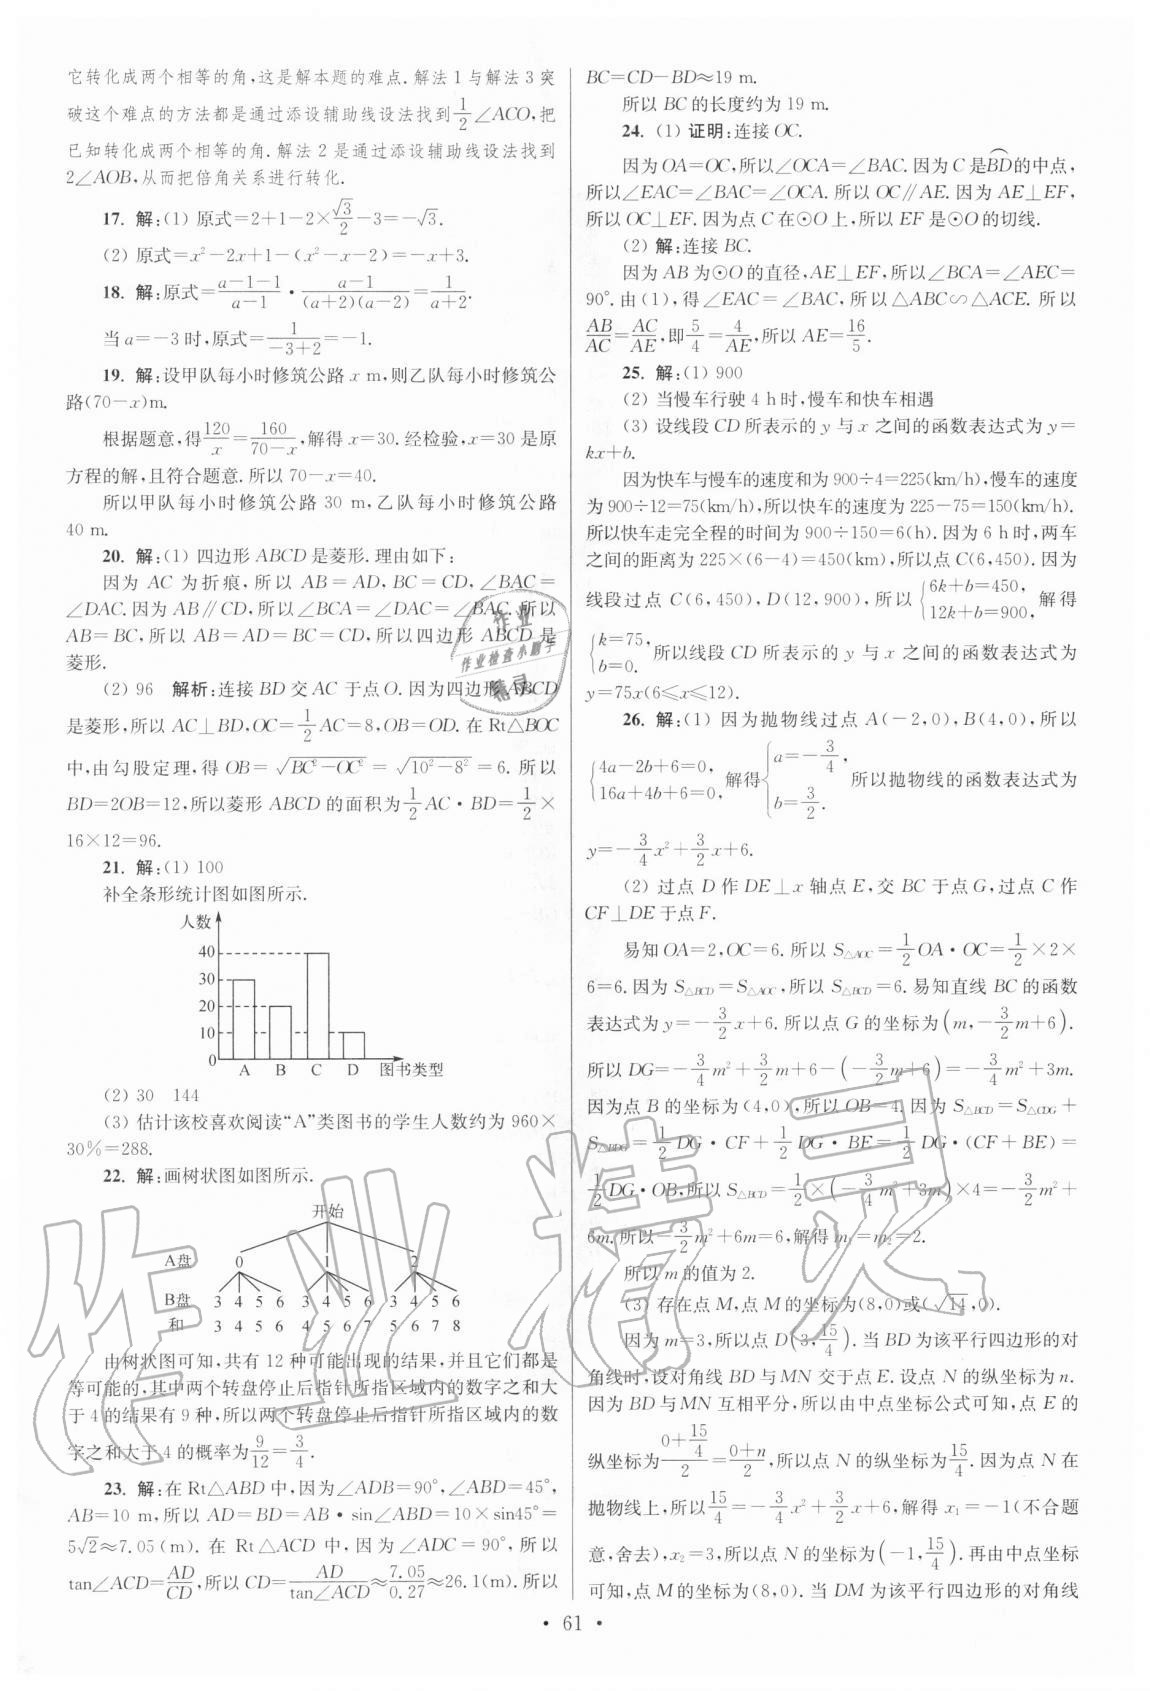 它转化成两个相等的角,这是解本题的难点.解法1与解法3突
破这个难点的方法都是通过添设辅助线设法找到$\frac{1}{2}$∠ACO,把
已知转化成两个相等的角.解法2是通过添设辅助线设法找到
2∠AOB,从而把倍角关系进行转化.
17. 解:(1) 原式=2+1-2×$\frac{\sqrt{3}}{2}$-3=-$\sqrt{3}$.
(2) 原式=x²-2x+1-(x²-x-2)=-x+3.
18. 解:原式=$\frac{a-1-1}{a-1}$·$\frac{a-1}{(a+2)(a-2)}$=$\frac{1}{a+2}$.
当a=-3时,原式=$\frac{1}{-3+2}$=-1.
19. 解:设甲队每小时修筑公路x m,则乙队每小时修筑公
路(70-x)m.
根据题意,得$\frac{120}{x}$=$\frac{160}{70-x}$,解得x=30.经检验,x=30是原
方程的解,且符合题意.所以70-x=40.
所以甲队每小时修筑公路30 m,乙队每小时修筑公路
40 m.
20. 解:(1) 四边形ABCD是菱形.理由如下:
因为AC为折痕,所以AB=AD,BC=CD,∠BAC=
∠DAC.因为AB∥CD,所以∠BCA=∠DAC=∠BAC.所以
AB=BC,所以AB=AD=BC=CD,所以四边形ABCD是
菱形.
(2) 96 解析:连接BD交AC于点O.因为四边形ABCD
是菱形,所以AC⊥BD,OC=$\frac{1}{2}$AC=8,OB=OD.在Rt△BOC
中,由勾股定理,得OB=$\sqrt{BC^2-OC^2}$=$\sqrt{10^2-8^2}$=6.所以
BD=2OB=12,所以菱形ABCD的面积为$\frac{1}{2}$AC·BD=$\frac{1}{2}$×
16×12=96.
21. 解:(1) 100
补全条形统计图如图所示.
人数
40
30
20
10
0
A B C D 图书类型
(2) 30 144
(3) 估计该校喜欢阅读“A”类图书的学生人数约为960×
30%=288.
22. 解:画树状图如图所示.
开始
A盘 0 1 2
B盘 3 4 5 6 3 4 5 6 3 4 5 6
和 3 4 5 6 4 5 6 7 5 6 7 8
由树状图可知,共有12种可能出现的结果,并且它们都是
等可能的,其中两个转盘停止后指针所指区域内的数字之和大
于4的结果有9种,所以两个转盘停止后指针所指区域内的数
字之和大于4的概率为$\frac{9}{12}$=$\frac{3}{4}$.
23. 解:在Rt△ABD中,因为∠ADB=90°,∠ABD=45°,
AB=10 m,所以AD=BD=AB·sin∠ABD=10×sin45°=
5$\sqrt{2}$≈7.05(m).在Rt△ACD中,因为∠ADC=90°,所以
tan∠ACD=$\frac{AD}{CD}$,所以CD=$\frac{AD}{tan∠ACD}$≈$\frac{7.05}{0.27}$≈26.1(m).所以
BC=CD-BD≈19 m.
所以BC的长度约为19 m.
24. (1) 证明:连接OC.
因为OA=OC,所以∠OCA=∠BAC.因为C是$\overset{\frown}{BD}$的中点,
所以∠EAC=∠BAC=∠OCA.所以OC∥AE.因为AE⊥EF,
所以OC⊥EF.因为点C在⊙O上,所以EF是⊙O的切线.
(2) 解:连接BC.
因为AB为⊙O的直径,AE⊥EF,所以∠BCA=∠AEC=
90°.由(1),得∠EAC=∠BAC,所以△ABC∽△ACE.所以
$\frac{AB}{AC}$=$\frac{AC}{AE}$,即$\frac{5}{4}$=$\frac{4}{AE}$,所以AE=$\frac{16}{5}$.
25. 解:(1) 900
(2) 当慢车行驶4 h时,慢车和快车相遇
(3) 设线段CD所表示的y与x之间的函数表达式为y=
kx+b.
因为快车与慢车的速度和为900÷4=225(km/h),慢车的速度
为900÷12=75(km/h),所以快车的速度为225-75=150(km/h).
所以快车走完全程的时间为900÷150=6(h).因为6 h时,两车
之间的距离为225×(6-4)=450(km),所以点C(6,450).因为
线段过点C(6,450),D(12,900),所以$\begin{cases}6k+b=450,\\12k+b=900,\end{cases}$解得
$\begin{cases}k=75,\\b=0.\end{cases}$所以线段CD所表示的y与x之间的函数表达式为
y=75x(6≤x≤12).
26. 解:(1) 因为抛物线过点A(-2,0),B(4,0),所以
$\begin{cases}4a-2b+6=0,\\16a+4b+6=0,\end{cases}$解得$\begin{cases}a=-\frac{3}{4},\\b=\frac{3}{2}.\end{cases}$所以抛物线的函数表达式为
y=-$\frac{3}{4}$x²+$\frac{3}{2}$x+6.
(2) 过点D作DE⊥x轴点E,交BC于点G,过点C作
CF⊥DE于点F.
易知OA=2,OC=6.所以S△AOC=$\frac{1}{2}$OA·OC=$\frac{1}{2}$×2×
6=6.因为S△BCD=S△AOC,所以S△BCD=6.易知直线BC的函数
表达式为y=-$\frac{3}{2}$x+6.所以点G的坐标为(m,-$\frac{3}{2}$m+6).
所以DG=-$\frac{3}{4}$m²+$\frac{3}{2}$m+6-(-$\frac{3}{2}$m+6)=-$\frac{3}{4}$m²+3m.
因为点B的坐标为(4,0),所以OB=4.因为S△BCD=S△CDG+
S△BDG=$\frac{1}{2}$DG·CF+$\frac{1}{2}$DG·BE=$\frac{1}{2}$DG·(CF+BE)=
$\frac{1}{2}$DG·OB,所以S△BCD=$\frac{1}{2}$×(-$\frac{3}{4}$m²+3m)×4=-$\frac{3}{2}$m²+
6m.所以-$\frac{3}{2}$m²+6m=6,解得m₁=m₂=2.
所以m的值为2.
(3) 存在点M,点M的坐标为(8,0)或($\sqrt{14}$,0).
因为m=3,所以点D(3,$\frac{15}{4}$).当BD为该平行四边形的对
角线时,设对角线BD与MN交于点E.设点N的纵坐标为n.
因为BD与MN互相平分,所以由中点坐标公式可知,点E的
纵坐标为$\frac{0+\frac{15}{4}}{2}$=$\frac{0+n}{2}$,所以点N的纵坐标为$\frac{15}{4}$.因为点N在
抛物线上,所以$\frac{15}{4}$=-$\frac{3}{4}$x²+$\frac{3}{2}$x+6,解得x₁=-1(不合题
意,舍去),x₂=3,所以点N的坐标为(-1,$\frac{15}{4}$).再由中点坐标
可知,点M的坐标为(8,0).当DM为该平行四边形的对角线
· 61 ·
作业
作业检查小助手
精灵
作业精灵